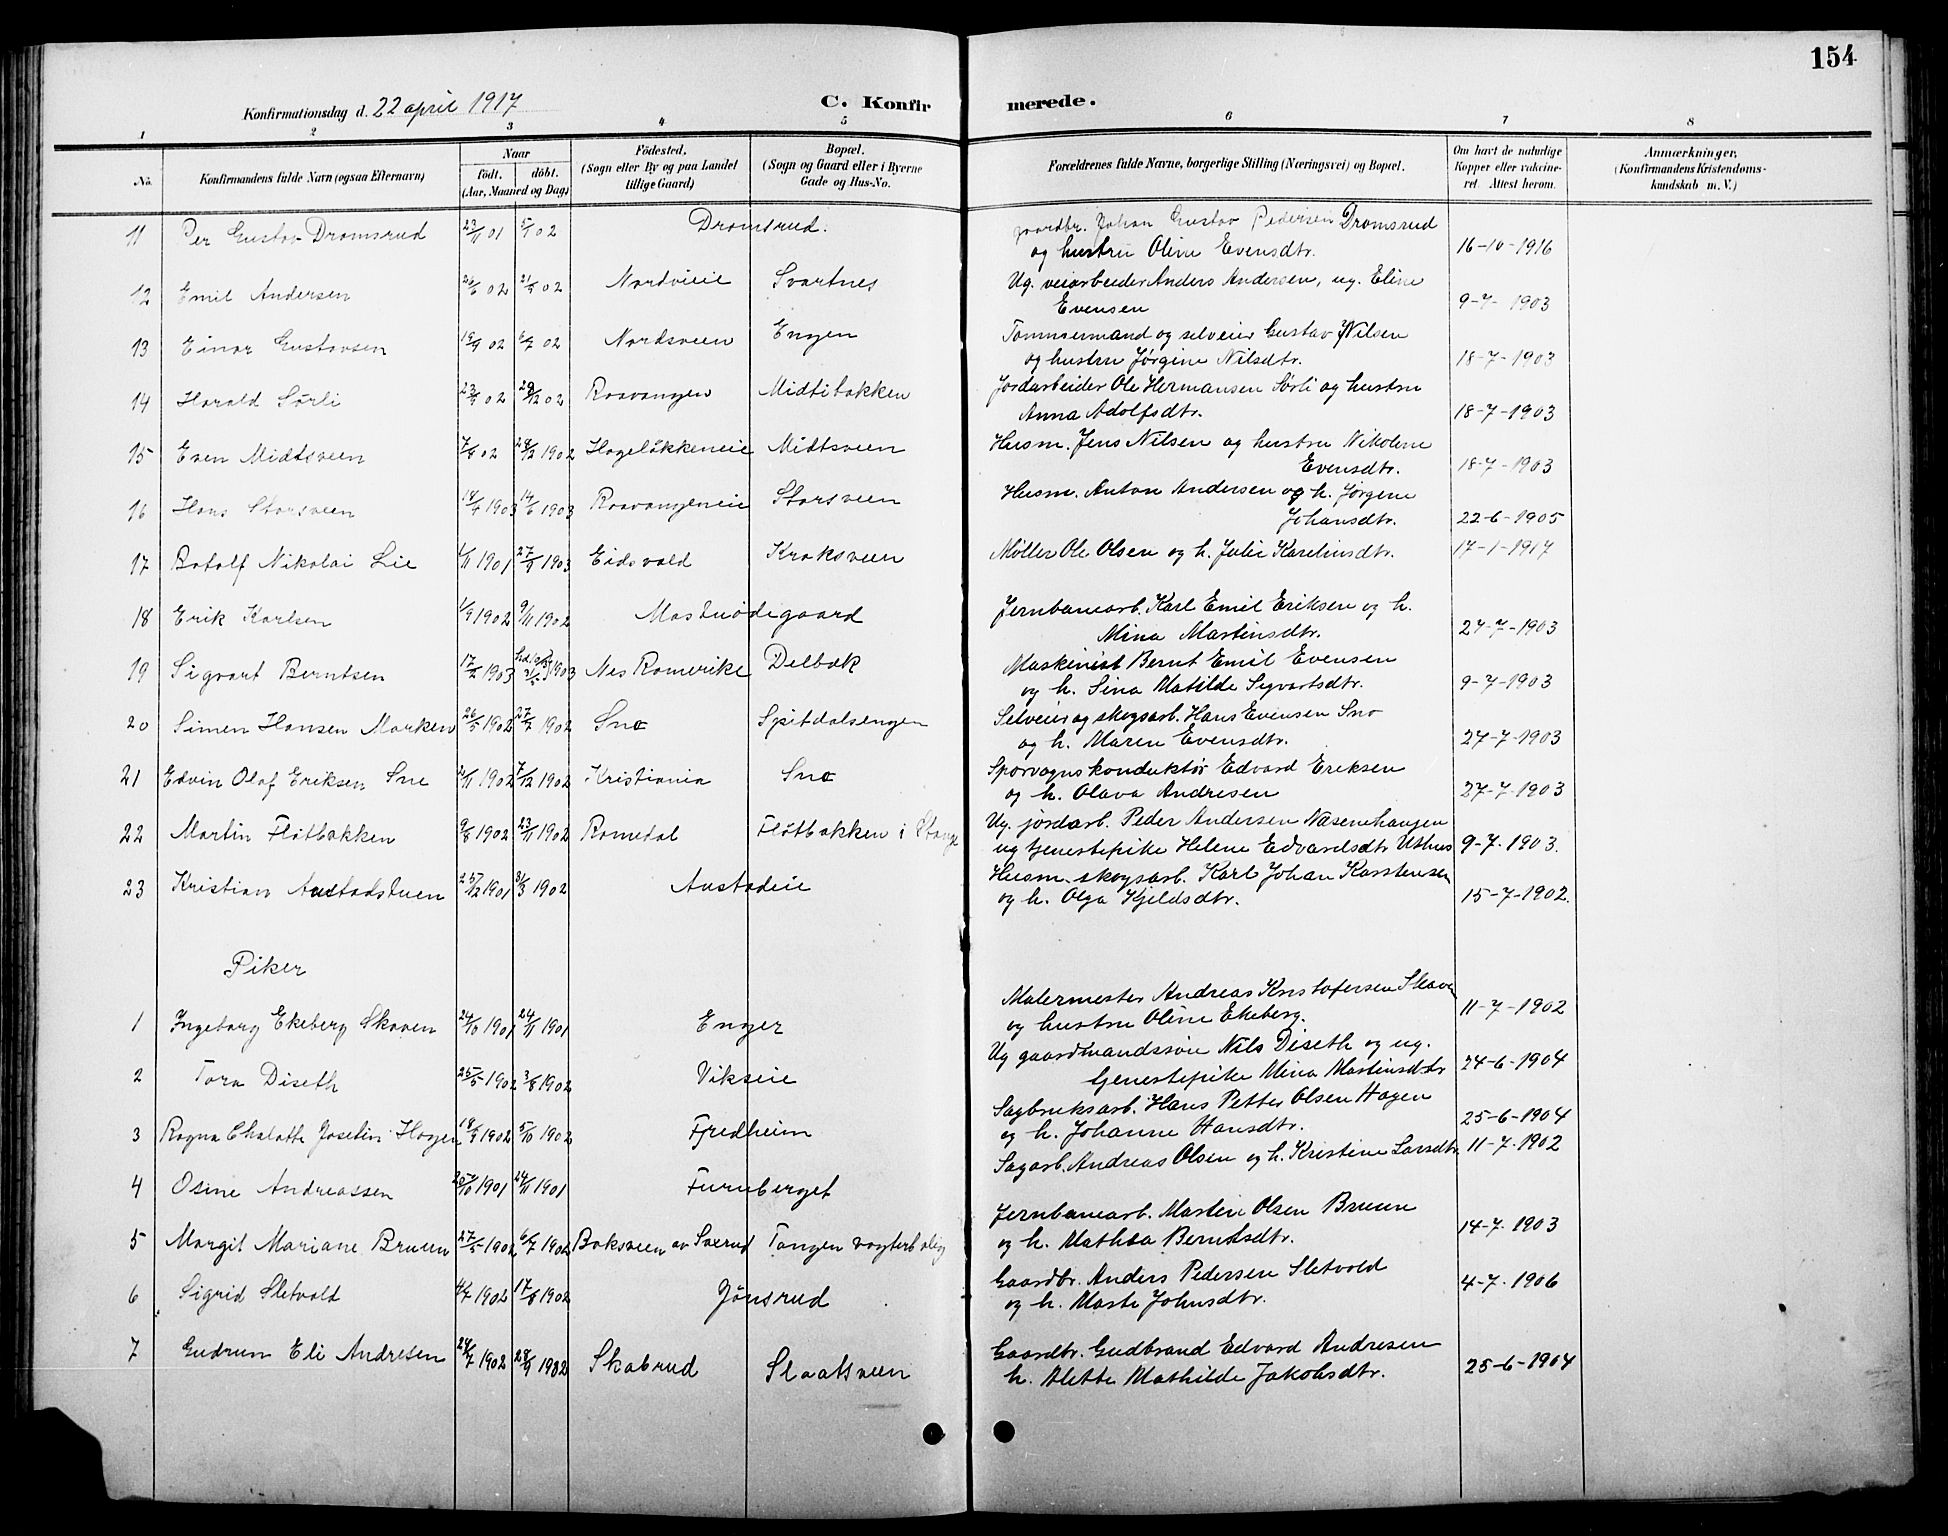 154
Konfirmationsdag d. 22 april 1917 C. Konfir merede.
1 2 3 4 5 6 7 8
No. Konfirmandens fulde Navn (ogsaa Efternavn) Naar födt. döbt. (Aar, Maaned og Dag) Födested. (Sogn eller By og paa Landet tillige Gaard) Bopæl. (Sogn og Gaard eller i Byerne Gade og Hus-No. Forældrenes fulde Navne, borgerlige Stilling (Næringsvei) og Bopæl. Om havt de naturlige Kopper eller vakcineret. Attest herom. Anmærkninger. (Konfirmandens Kristendomskundskab m. V.)
11 Per Gustav Dromsrud 23/11 01 5/1 02 Dromsrud. gaardbr. Johan Gustav Pedersen Dromsrud
og hustru Oline Evensdtr. 16-10-1916
12 Emil Andersen 02 02 Nordvieie Svartnes Ug. veiarbeider Anders Andersen, ug. Eline
Evensen 9-7-1903
13 Einar Gustavsen 02 02 Nordsveen Engen Tømmermand og selveier Gustav Nilsen
og hustru Jørgine Nilsdtr. 18-7-1903
14 Harald Sørli 02 02 Raavangen Midtibakken Jordarbeider Ole Hermansen Sørli og hustru
Anna Adolfsdtr. 18-7-1903
15 Even Midtsveen 02 28/12 1902 Hageløkkeneie Midtsveen Husm. Jens Nilsen og hustru Nikoline
Evensdtr. 18-7-1903
16 Hans Storsveen 1903 14/6 1903 Raavangeneie Storsveen Husm. Anton Andersen og h. Jørgine
Johansdtr. 22-6-1905
17 Botolf Nikolai Lie 1901 1903 Eidsvold Kroksveen Møller Ole Olsen og h. Julie Karelinsdtr. 17-1-1917
18 Erik Karlsen 1/9 1902 9/11 1902 Mostuødegaard Jernbanearb. Karl Emil Eriksen og h.
Mina Martinsdtr. 27-7-1903
19 Sigvart Berntsen 17/2 1903 1903 Nes Romerike Delbæk Maskinist Bernt Emil Evensen
og h. Sina Matilde Sigvartsdtr. 9-7-1903
20 Simen Hansen Morken 26/5 1902 27/7 1902 Sne Spitdalsengen Selveier og skogsarb. Hans Evensen Sne
og h. Maren Evensdtr. 27-7-1903
21 Edvin Olaf Eriksen Sne 1902 7/12 1902 Kristiania Sne Sporvognskonduktør Edvard Eriksen
og h. Olava Andresen 27-7-1903
22 Martin Fløtbakken 9/8 1902 23/11 1902 Romedal Fløtbakken i Stange Ug. jordarb. Peder Andersen Næsenehaugen
ug tjenestepike Helene Edvardsdtr Uthus 9-7-1903.
23 Kristian Austadstuen 25/12 1901 31/3 1902 Austadeie Husm. skogsarb. Karl Johan Karstensen
og h. Olga Kjeldsdtr. 15-7-1902.
Piker
1 Ingeborg Ekeberg Skoven 24/10 1901 24/11 1901 Enger Malermester Andreas Kristofersen Skoven
og hustru Oline Ekeberg. 11-7-1902
2 Tora Diseth 25/5 1902 3/8 1902 Vikseie Ug gaardmandssøn Nils Diseth og ug.
tjenestepike Mina Martinsdtr 24-6-1904
3 Ragna Chalotte Josefin Hagen 1902 5/10 1902 Fredheim Sagbruksarb. Hans Petter Olsen Hagen
og h. Johanne Hansdtr. 25-6-1904
4 Osine Andreassen 1901 24/11 1901 Furuberget Sagarb. Andreas Olsen og h. Kristine Larsdtr. 11-7-1902
5 Margit Mariane Bruun 27/5 1902 6/7 1902 Baksveen av Sverud Tangen vogterbolig Jernbanearb. Martin Olsen Bruun
og h. Mathea Berntsdtr. 14-7-1903
6 Sigrid Sletvold 1902 17/8 1902 Jønsrud Gaardbr. Anders Pedersen Sletvold
og h. Marte Johnsdtr. 4-7-1906
7 Gudrun Eli Andresen 1902 28/9 1902 Skabrud Slaatsveen Gaardbr. Gudbrand Edvard Andresen
h. Alette Mathilde Jakobsdtr. 25-6-1904